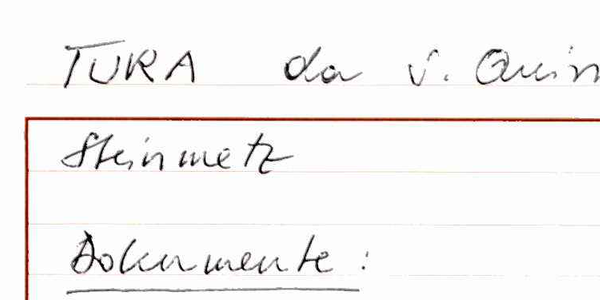 TURA da S. Quin
Steinmetz
Dokumente: